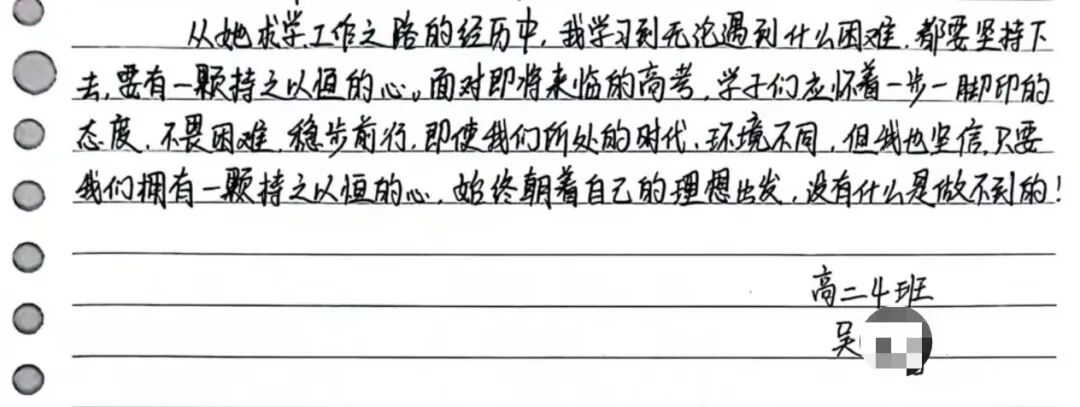 从她求学工作之路的经历中，我学习到无论遇到什么困难，都要坚持下
去，要有一颗持之以恒的心。面对即将来临的高考，学子们应怀着一步一脚印的
态度，不畏困难，稳步前行，即使我们所处的时代、环境不同，但我也坚信，只要
我们拥有一颗持之以恒的心，始终朝着自己的理想出发，没有什么是做不到的！
高二4班
吴